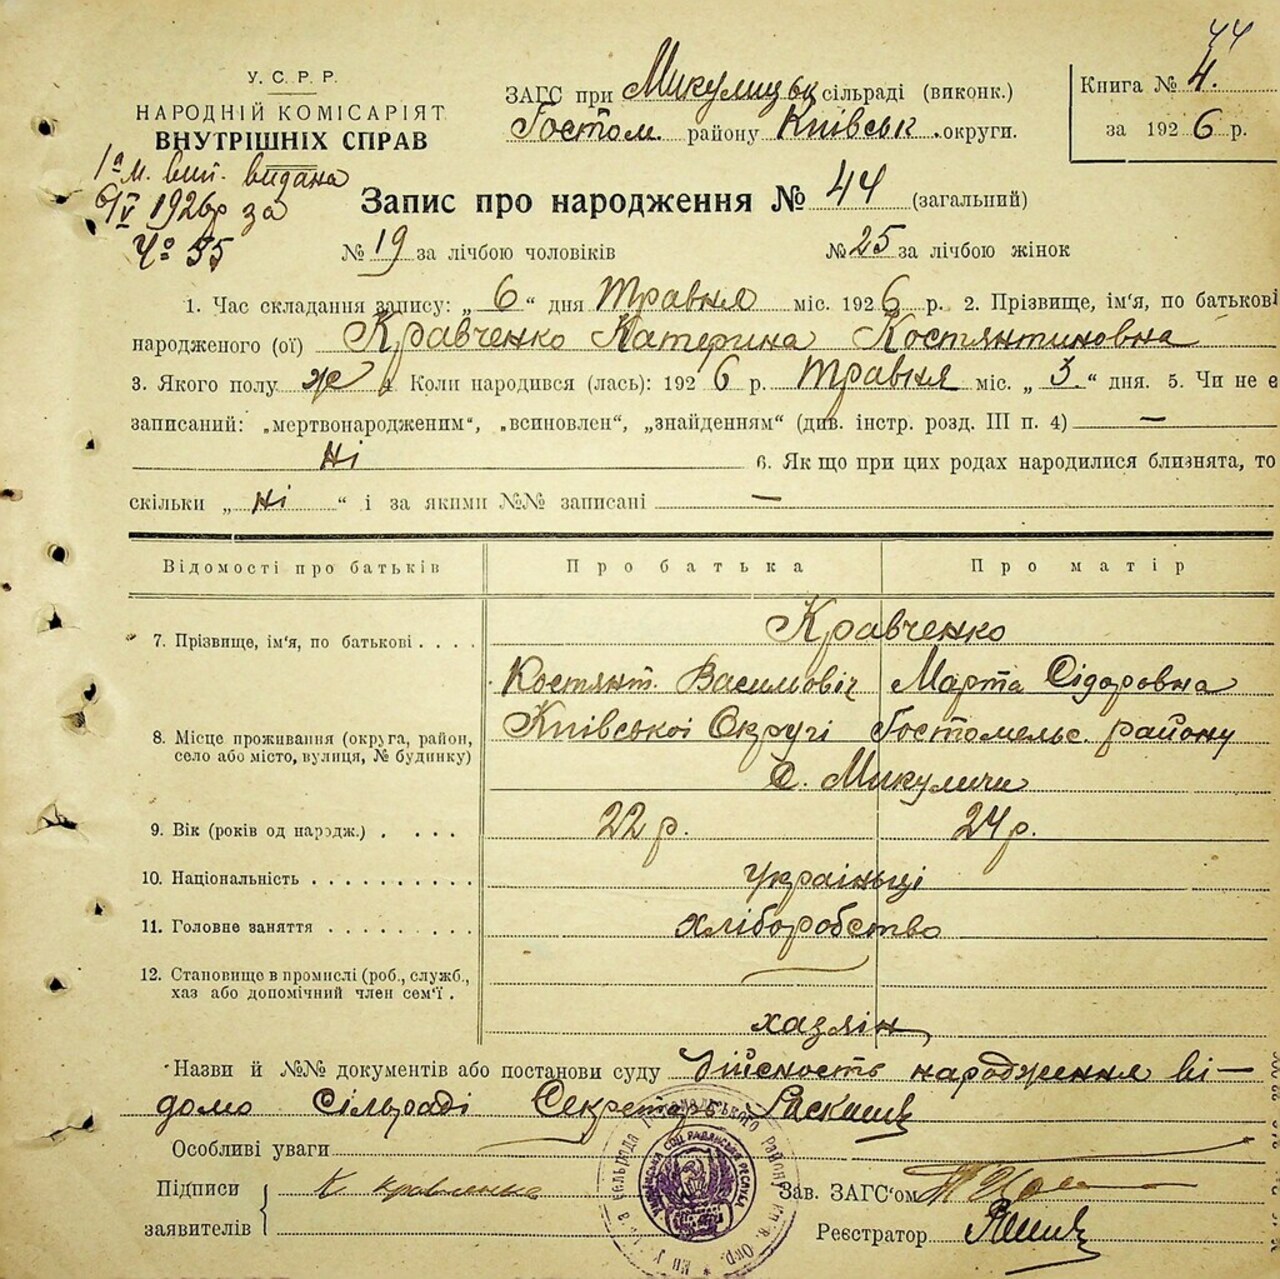 44
У. С. Р. Р.
НАРОДНІЙ КОМІСАРІЯТ
ВНУТРІШНІХ СПРАВ
1ª м. вип. видана
6/V 1926 р за
Ч° 55
ЗАГС при Микулицьк сільраді (виконк.)
Гостом. району Київськ. округи.
Книга № 4.
за 1926 р.
Запис про народження № 44 (загальний)
№ 19 за лічбою чоловіків № 25 за лічбою жінок
1. Час складання запису: „ 6 “ дня Травня міс. 1926 р. 2. Прізвище, ім'я, по батькові
народженого (ої) Кравченко Катерина Костянтиновна
3. Якого полу ж 4. Коли народився (лась): 1926 р. Травня міс. „ 3. “ дня. 5. Чи не є
записаний: „мертвонародженим“, „всиновлен“, „знайденням“ (див. інстр. розд. III п. 4) —
Ні 6. Як що при цих родах народилися близнята, то
скільки „ Ні “ і за якими №№ записані —
Відомості про батьків Про батька Про матір
7. Прізвище, ім'я, по батькові . . . . Кравченко
Костянт. Василовіч Марта Сідоровна
8. Місце проживання (округа, район,
село або місто, вулиця, № будинку)
Київської Округі Гостомельс. району
С. Микуличи
9. Вік (років од народж.) . . . . 22 р. 24 р.
10. Національність . . . . . . . . . . Українці
11. Головне заняття . . . . . . . . . хліборобство
12. Становище в промислі (роб., служб.,
хаз або допомічний член сем'ї . —
хазяін
Назви й №№ документів або постанови суду Дійсность народження ві-
домо Сільраді Секретарь
Особливі уваги
Підписи
заявителів К Кравченко
Зав. ЗАГС'ом
Реєстратор
УКРАЇНСЬКА СОЦ РАДЯНСЬКА РЕСПУБЛІКА